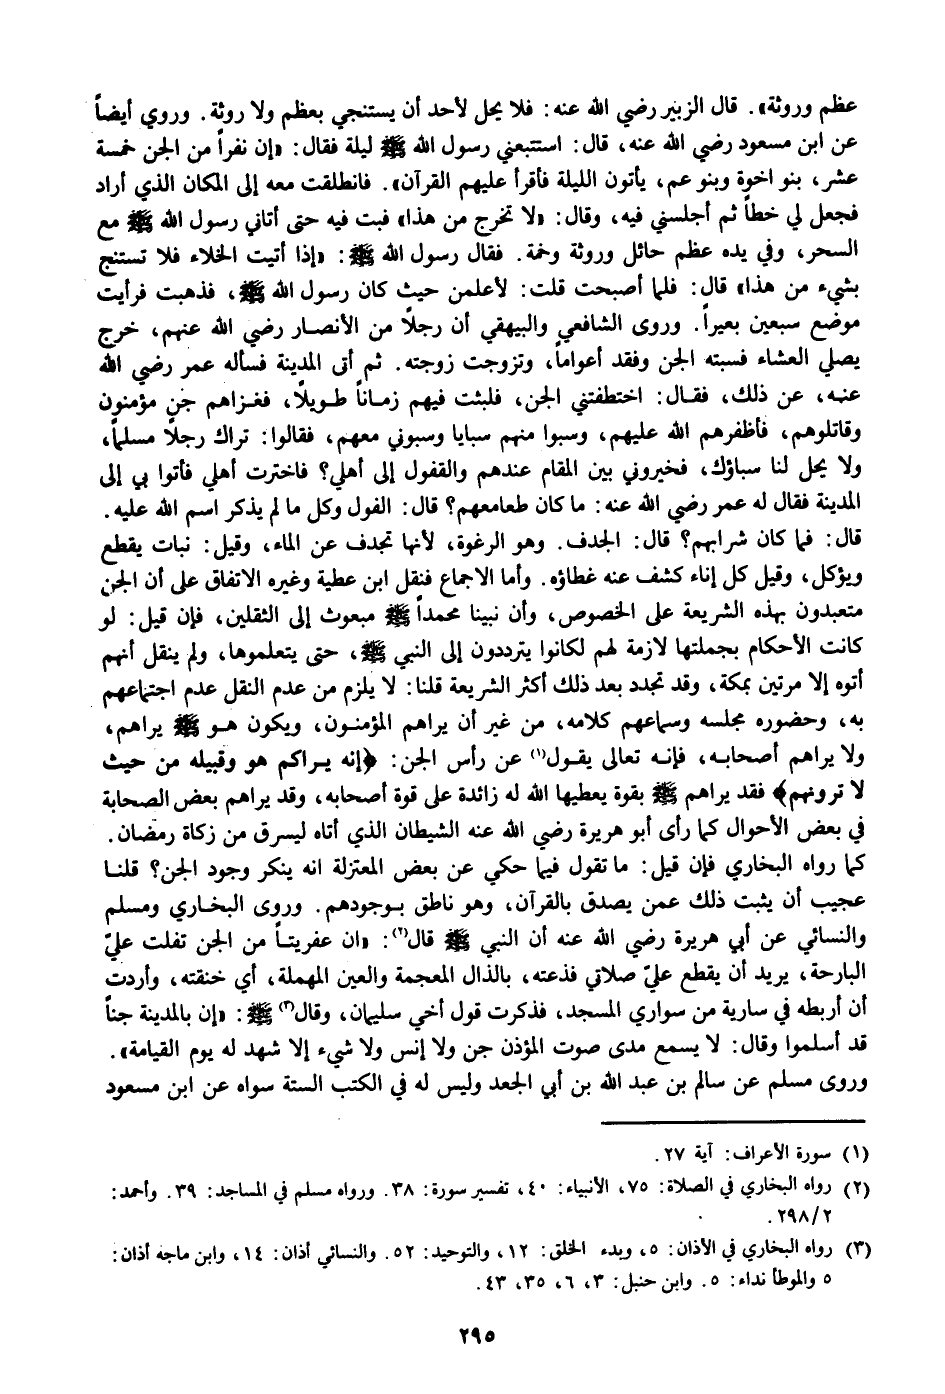 عظم وروثة». قال الزبير رضي الله عنه: فلا يحل لأحد أن يستنجي بعظم ولا روثة. وروي أيضاً
عن ابن مسعود رضي الله عنه، قال: استتبعني رسول الله ﷺ ليلة فقال: «إن نفراً من الجن خمسة
عشر، بنو اخوة وبنو عم، يأتون الليلة فأقرأ عليهم القرآن». فانطلقت معه إلى المكان الذي أراد
فجعل لي خطاً ثم أجلسني فيه، وقال: «لا تخرج من هذا» فبت فيه حتى أتاني رسول الله ﷺ مع
السحر، وفي يده عظم حائل وروثة وحمة. فقال رسول الله ﷺ: «إذا أتيت الخلاء فلا تستنج
بشيء من هذا» قال: فلما أصبحت قلت: لأعلمن حيث كان رسول الله ﷺ، فذهبت فرأيت
موضع سبعين بعيراً. وروى الشافعي والبيهقي أن رجلاً من الأنصار رضي الله عنهم، خرج
يصلي العشاء فسبته الجن وفقد أعواماً، وتزوجت زوجته. ثم أتى المدينة فسأله عمر رضي الله
عنه، عن ذلك، فقال: اختطفتني الجن، فلبثت فيهم زماناً طويلاً، فغزاهم جن مؤمنون
وقاتلوهم، فأظفرهم الله عليهم، وسبوا منهم سبايا وسبوني معهم، فقالوا: تراك رجلاً مسلماً،
ولا يحل لنا سباؤك، فخيروني بين المقام عندهم والقفول إلى أهلي؟ فاخترت أهلي فأتوا بي إلى
المدينة فقال له عمر رضي الله عنه: ما كان طعامهم؟ قال: الفول وكل ما لم يذكر اسم الله عليه.
قال: فما كان شرابهم؟ قال: الجدف. وهو الرغوة، لأنها تجدف عن الماء، وقيل: نبات يقطع
ويؤكل، وقيل كل إناء كشف عنه غطاؤه. وأما الاجماع فنقل ابن عطية وغيره الاتفاق على أن الجن
متعبدون بهذه الشريعة على الخصوص، وأن نبينا محمداً ﷺ مبعوث إلى الثقلين، فإن قيل: لو
كانت الأحكام بجملتها لازمة لهم لكانوا يترددون إلى النبي ﷺ، حتى يتعلموها، ولم ينقل أنهم
أتوه إلا مرتين بمكة، وقد تجدد بعد ذلك أكثر الشريعة قلنا: لا يلزم من عدم النقل عدم اجتماعهم
به، وحضوره مجلسه وسماعهم كلامه، من غير أن يراهم المؤمنون، ويكون هو ﷺ يراهم،
ولا يراهم أصحابه، فإنه تعالى يقول(١) عن رأس الجن: ﴿إنه يراكم هو وقبيله من حيث
لا ترونهم﴾ فقد يراهم ﷺ بقوة يعطيها الله له زائدة على قوة أصحابه، وقد يراهم بعض الصحابة
في بعض الأحوال كما رأى أبو هريرة رضي الله عنه الشيطان الذي أتاه ليسرق من زكاة رمضان.
كما رواه البخاري فإن قيل: ما تقول فيما حكي عن بعض المعتزلة انه ينكر وجود الجن؟ قلنا
عجيب أن يثبت ذلك عمن يصدق بالقرآن، وهو ناطق بوجودهم. وروى البخاري ومسلم
والنسائي عن أبي هريرة رضي الله عنه أن النبي ﷺ قال(٢): «ان عفريتاً من الجن تفلت عليّ
البارحة، يريد أن يقطع عليّ صلاتي فذعته، بالذال المعجمة والعين المهملة، أي خنقته، وأردت
أن أربطه في سارية من سواري المسجد، فذكرت قول أخي سليمان، وقال(٣) ﷺ: «إن بالمدينة جناً
قد أسلموا وقال: لا يسمع مدى صوت المؤذن جن ولا إنس ولا شيء إلا شهد له يوم القيامة».
وروى مسلم عن سالم بن عبد الله بن أبي الجعد وليس له في الكتب الستة سواه عن ابن مسعود
(١) سورة الأعراف: آية ٢٧.
(٢) رواه البخاري في الصلاة: ٧٥، الأنبياء: ٤٠، تفسير سورة: ٣٨. ورواه مسلم في المساجد: ٣٩. وأحمد:
٢٩٨/٢.
(٣) رواه البخاري في الأذان: ٥، وبدء الخلق: ١٢، والتوحيد: ٥٢. والنسائي أذان: ١٤، وابن ماجه أذان:
٥ والموطأ نداء: ٥. وابن حنبل: ٣، ٦، ٣٥، ٤٣.
٢٩٥